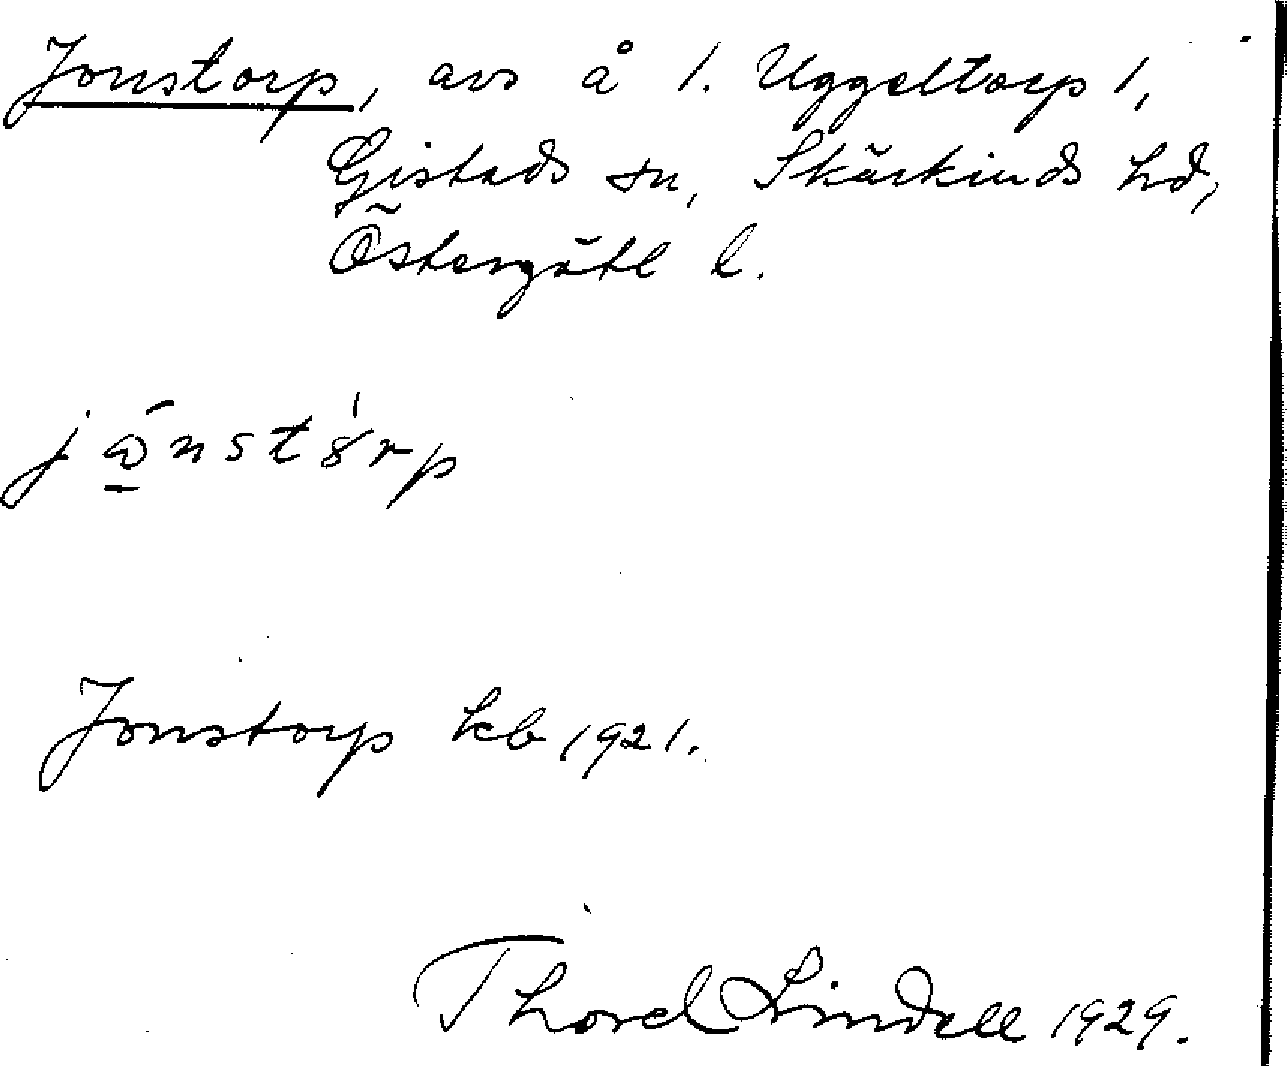 Jonstorp, avs å 1. Uggeltorp 1,
Gistads sn, Skärkinds hd,
Östergötl l.
Jonstorp kb 1921.
Thorel Lindell 1929.